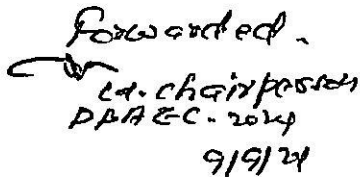 Forwarded.
Ld. Chairperson
DBAEC-2024
9/9/24